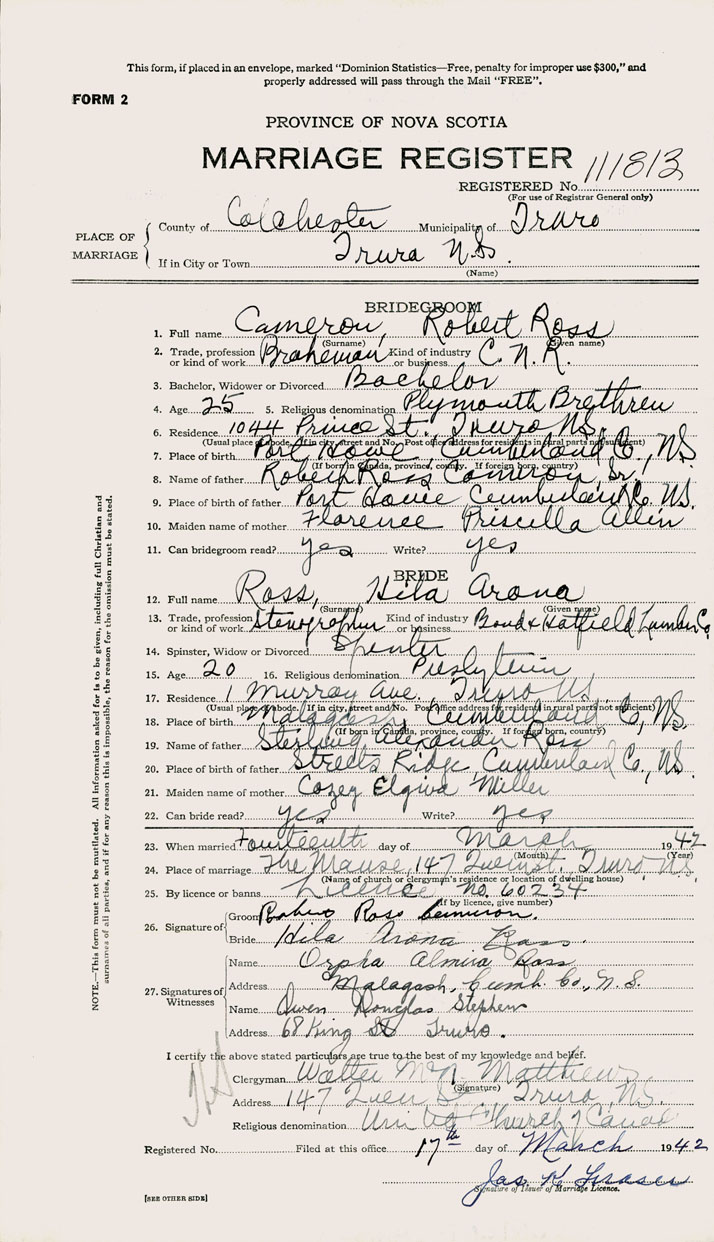 This form, if placed in an envelope, marked "Dominion Statistics—Free, penalty for improper use $300," and
properly addressed will pass through the Mail "FREE".
FORM 2
PROVINCE OF NOVA SCOTIA
MARRIAGE REGISTER
REGISTERED No. 111813
(For use of Registrar General only)
PLACE OF MARRIAGE
County of Colchester Municipality of Truro
If in City or Town Truro N.S.
(Name)
BRIDEGROOM
1. Full name Cameron, Robert Ross
(Surname) (Given name)
2. Trade, profession or kind of work Brakeman Kind of industry or business C.N.R.
3. Bachelor, Widower or Divorced Bachelor
4. Age 25 5. Religious denomination Plymouth Brethren
6. Residence 1044 Prince St. Truro N.S.
(Usual place of abode. If in city, street and No. Post office address for residents in rural parts not sufficient)
7. Place of birth Port Howe Cumberland Co., N.S.
(If born in Canada, province, county. If foreign born, country)
8. Name of father Robert Ross Cameron, Sr.
9. Place of birth of father Port Howe Cumberland Co. N.S.
10. Maiden name of mother Florence Priscilla Allin
11. Can bridegroom read? yes Write? yes
BRIDE
12. Full name Ross, Hila Arona
(Surname) (Given name)
13. Trade, profession or kind of work Stenographer Kind of industry or business Bond & Hatfield Lumber Co
14. Spinster, Widow or Divorced
15. Age 20 16. Religious denomination
17. Residence 1 Murray Ave. Truro N.S.
(Usual place of abode. If in city, street and No. Post Office address for residents in rural parts not sufficient)
18. Place of birth Malagash, Cumberland Co., N.S.
(If born in Canada, province, county. If foreign born, country)
19. Name of father Sterling Alexander Ross
20. Place of birth of father Streets Ridge, Cumberland Co., N.S.
21. Maiden name of mother Elgiva Miller
22. Can bride read? yes Write? yes
23. When married Fourteenth day of March 1942
(Month) (Year)
24. Place of marriage The Manse, 147 Queen St. Truro N.S.
(Name of church or clergyman's residence or location of dwelling house)
25. By licence or banns Licence No. 60234
(If by licence, give number)
26. Signature of
Groom Ross Cameron.
Bride Hila Arona Ross.
27. Signatures of Witnesses
Name Orpha Almira Ross
Address Malagash, Cumb. Co., N.S.
Name Owen Douglas Stephen
Address 68 King St Truro.
I certify the above stated particulars are true to the best of my knowledge and belief.
Clergyman Walter Matthews
(Signature)
Address 147 Queen St Truro, N.S.
Religious denomination United Church of Canada
Registered No. Filed at this office 17th day of March 1942
Jas K Fraser
Signature of Issuer of Marriage Licence.
[SEE OTHER SIDE]
NOTE.—This form must not be mutilated. All information asked for is to be given, including full Christian and
surnames of all parties, and if for any reason this is impossible, the reason for the omission must be stated.